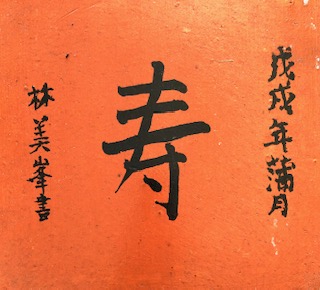 戊戌年蒲月
寿
林美峯書